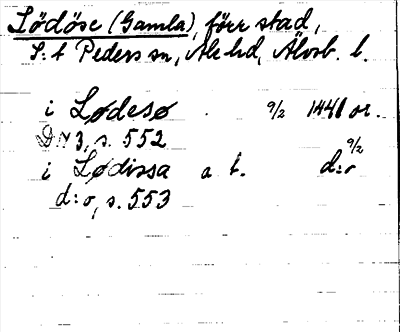 Lödöse (Gamla), förr stad,
S:t Peders sn, Ale hd, Älvsb. l.
i Lødesø 9/2 1441 or.
DN 3, s. 552
i Lødissa a. t. 9/2 d:o
d:o, s. 553